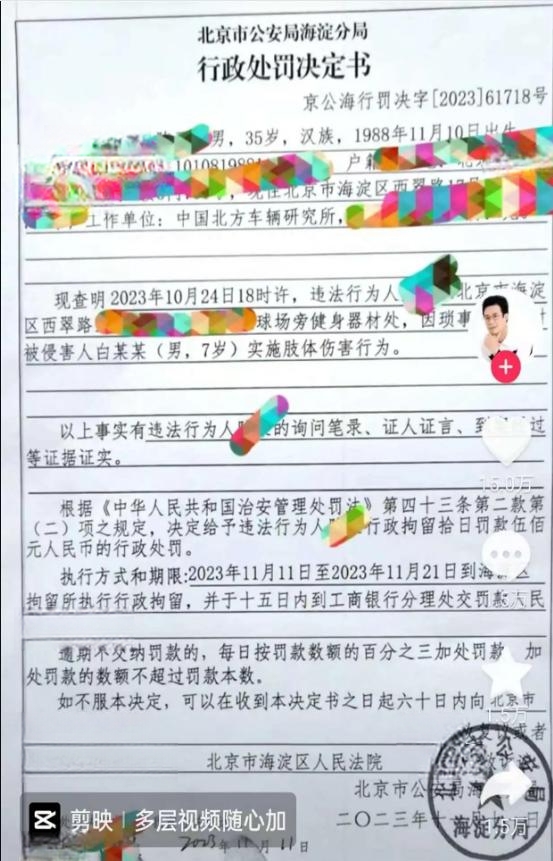 北京市公安局海淀分局
行政处罚决定书
京公海行罚决字[2023]61718号
男，35岁，汉族，1988年11月10日出生
户籍
现住北京市海淀区西翠路
工作单位：中国北方车辆研究所，
现查明2023年10月24日18时许，违法行为人 北京市海淀
区西翠路 球场旁健身器材处，因琐事
被侵害人白某某（男，7岁）实施肢体伤害行为。
以上事实有违法行为人 的询问笔录、证人证言、到 过
等证据证实。
根据《中华人民共和国治安管理处罚法》第四十三条第二款第
（二）项之规定，决定给予违法行为人 行政拘留拾日罚款伍佰
元人民币的行政处罚。
执行方式和期限:2023年11月11日至2023年11月21日到海淀区
拘留所执行行政拘留，并于十五日内到工商银行分理处交罚款 民
逾期不交纳罚款的，每日按罚款数额的百分之三加处罚款，加
处罚款的数额不超过罚款本数。
如不服本决定，可以在收到本决定书之日起六十日内向 北京市
复议或者
北京市海淀区人民法院
北京市公安局海
二〇二三年十
海淀分局
2023年11月11日
15.0万
1.5万
15万
剪映 多层视频随心加